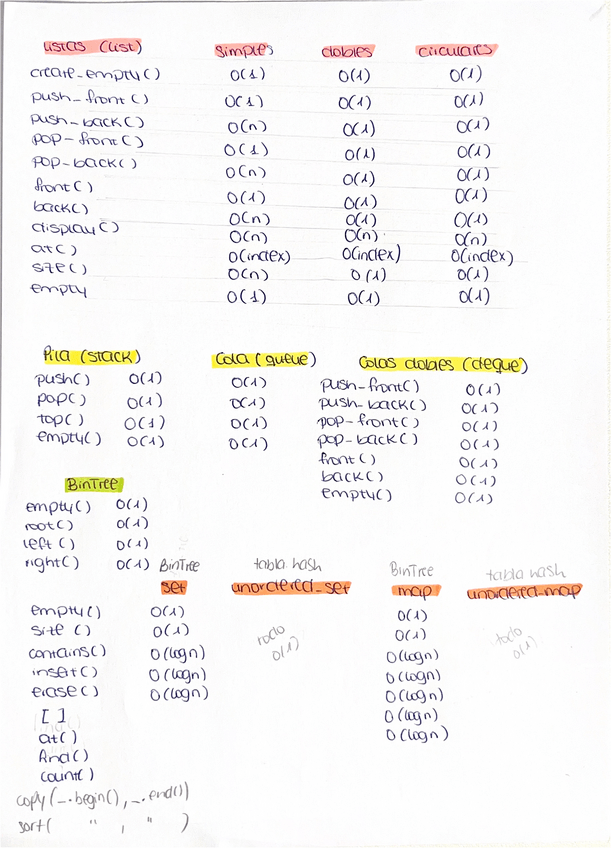 Listas (list) simples dobles circulares
create_empty() O(1) O(1) O(1)
push_front() O(1) O(1) O(1)
push_back() O(n) O(1) O(1)
pop-front() O(1) O(1) O(1)
pop-back() O(n) O(1) O(1)
front() O(1) O(1) O(1)
back() O(n) O(1) O(1)
display() O(n) O(n) O(n)
at() O(index) O(index) O(index)
size() O(n) O(1) O(1)
empty O(1) O(1) O(1)
Pila (stack) Cola (queue) Colas dobles (deque)
push() O(1) O(1) push-front() O(1)
pop() O(1) O(1) push-back() O(1)
top() O(1) O(1) pop-front() O(1)
empty() O(1) O(1) pop-back() O(1)
front() O(1)
back() O(1)
empty() O(1)
BinTree
empty() O(1)
root() O(1)
left() O(1)
right() O(1)
BinTree tabla hash BinTree tabla hash
set unordered_set map unordered_map
empty() O(1) O(1)
size() O(1) todo O(1) O(1) todo O(1)
contains() O(logn) O(logn)
insert() O(logn) O(logn)
erase() O(logn) O(logn)
[ ] O(logn)
at() O(logn)
find()
count()
copy(_.begin(), _.end())
sort( " , " )